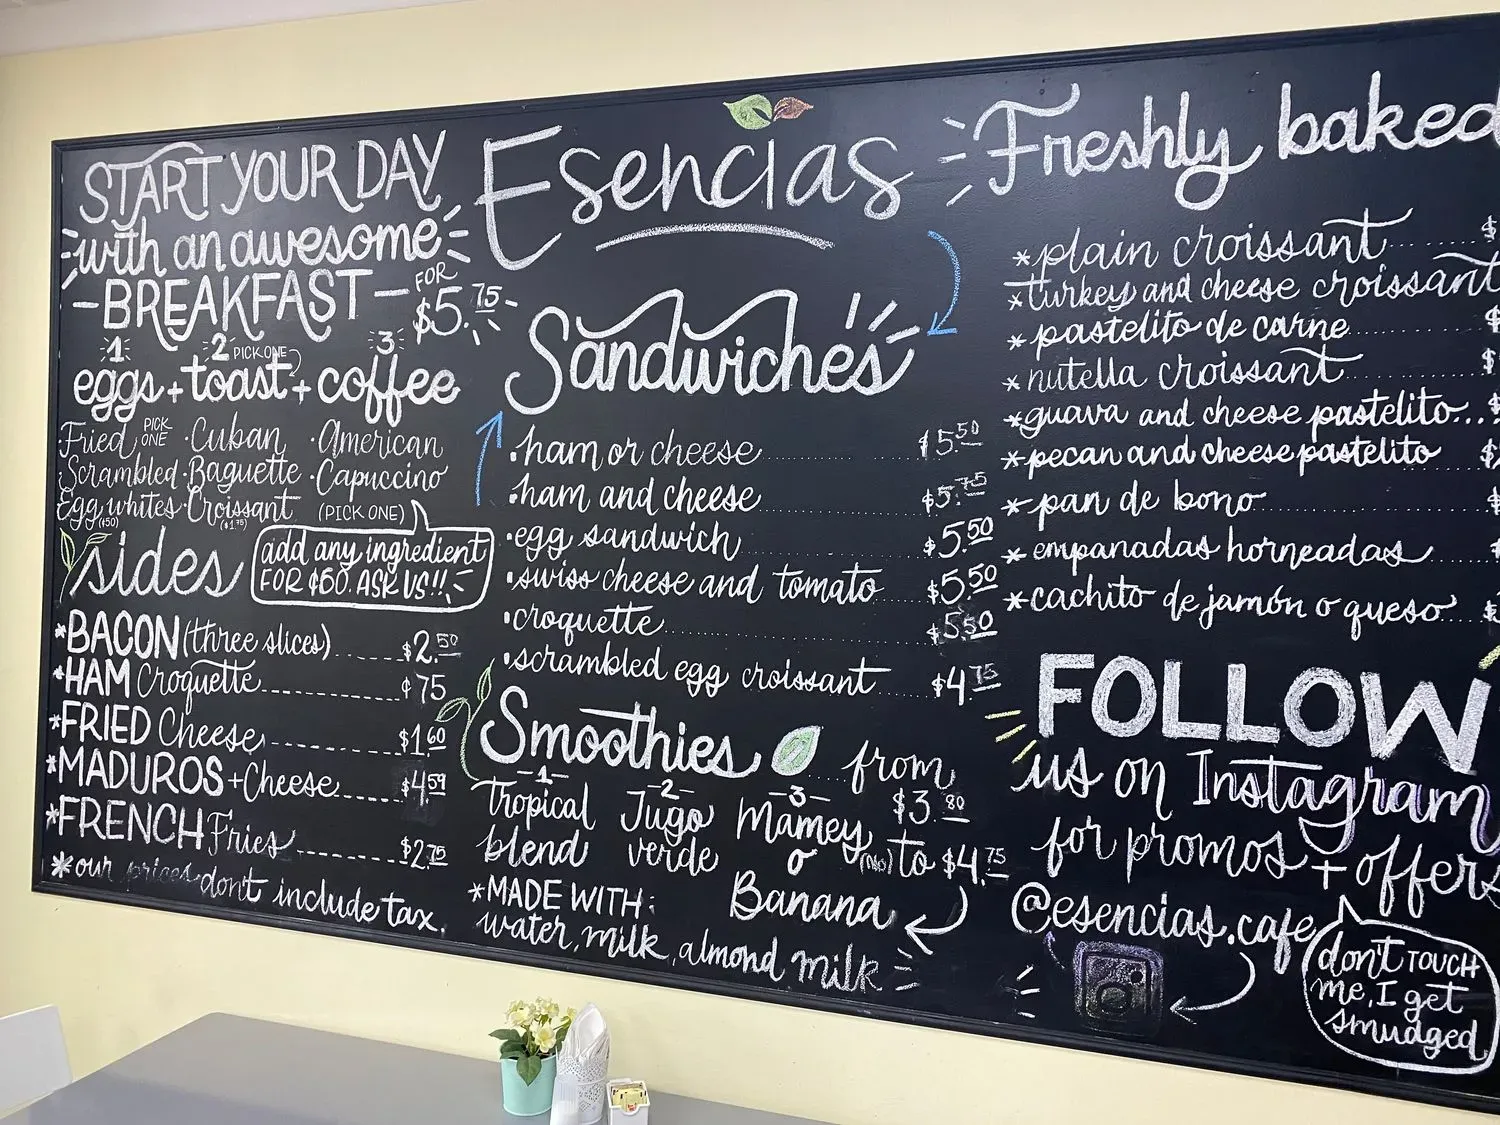 START YOUR DAY
with an awesome
BREAKFAST
FOR
$5.75
1 2 PICK ONE 3
eggs + toast + coffee
Fried PICK ONE · Cuban · American
Scrambled · Baguette · Capuccino
Egg whites · Croissant (PICK ONE)
($50) ($1.75)
sides
add any ingredient
FOR $50. ASK US!!
*BACON (three slices) $2.50
*HAM Croquette $75
*FRIED Cheese $1.60
*MADUROS + Cheese $4.59
*FRENCH Fries $2.75
*our prices don't include tax.
Esencias
Sandwiches
· ham or cheese $5.50
· ham and cheese $5.75
· egg sandwich $5.50
· swiss cheese and tomato $5.50
· croquette $5.50
· scrambled egg croissant $4.75
Smoothies from
$3.80
to $4.75
-1- -2- -3-
tropical Jugo Mamey
blend verde o
Banana
*MADE WITH:
water, milk, almond milk
Freshly baked
*plain croissant $
*turkey and cheese croissant
*pastelito de carne $
*nutella croissant $
*guava and cheese pastelito...
*pecan and cheese pastelito $
*pan de bono $
*empanadas horneadas $
*cachito de jamón o queso $
FOLLOW
us on Instagram
for promos + offers
@esencias.cafe
don't TOUCH
me, I get
smudged